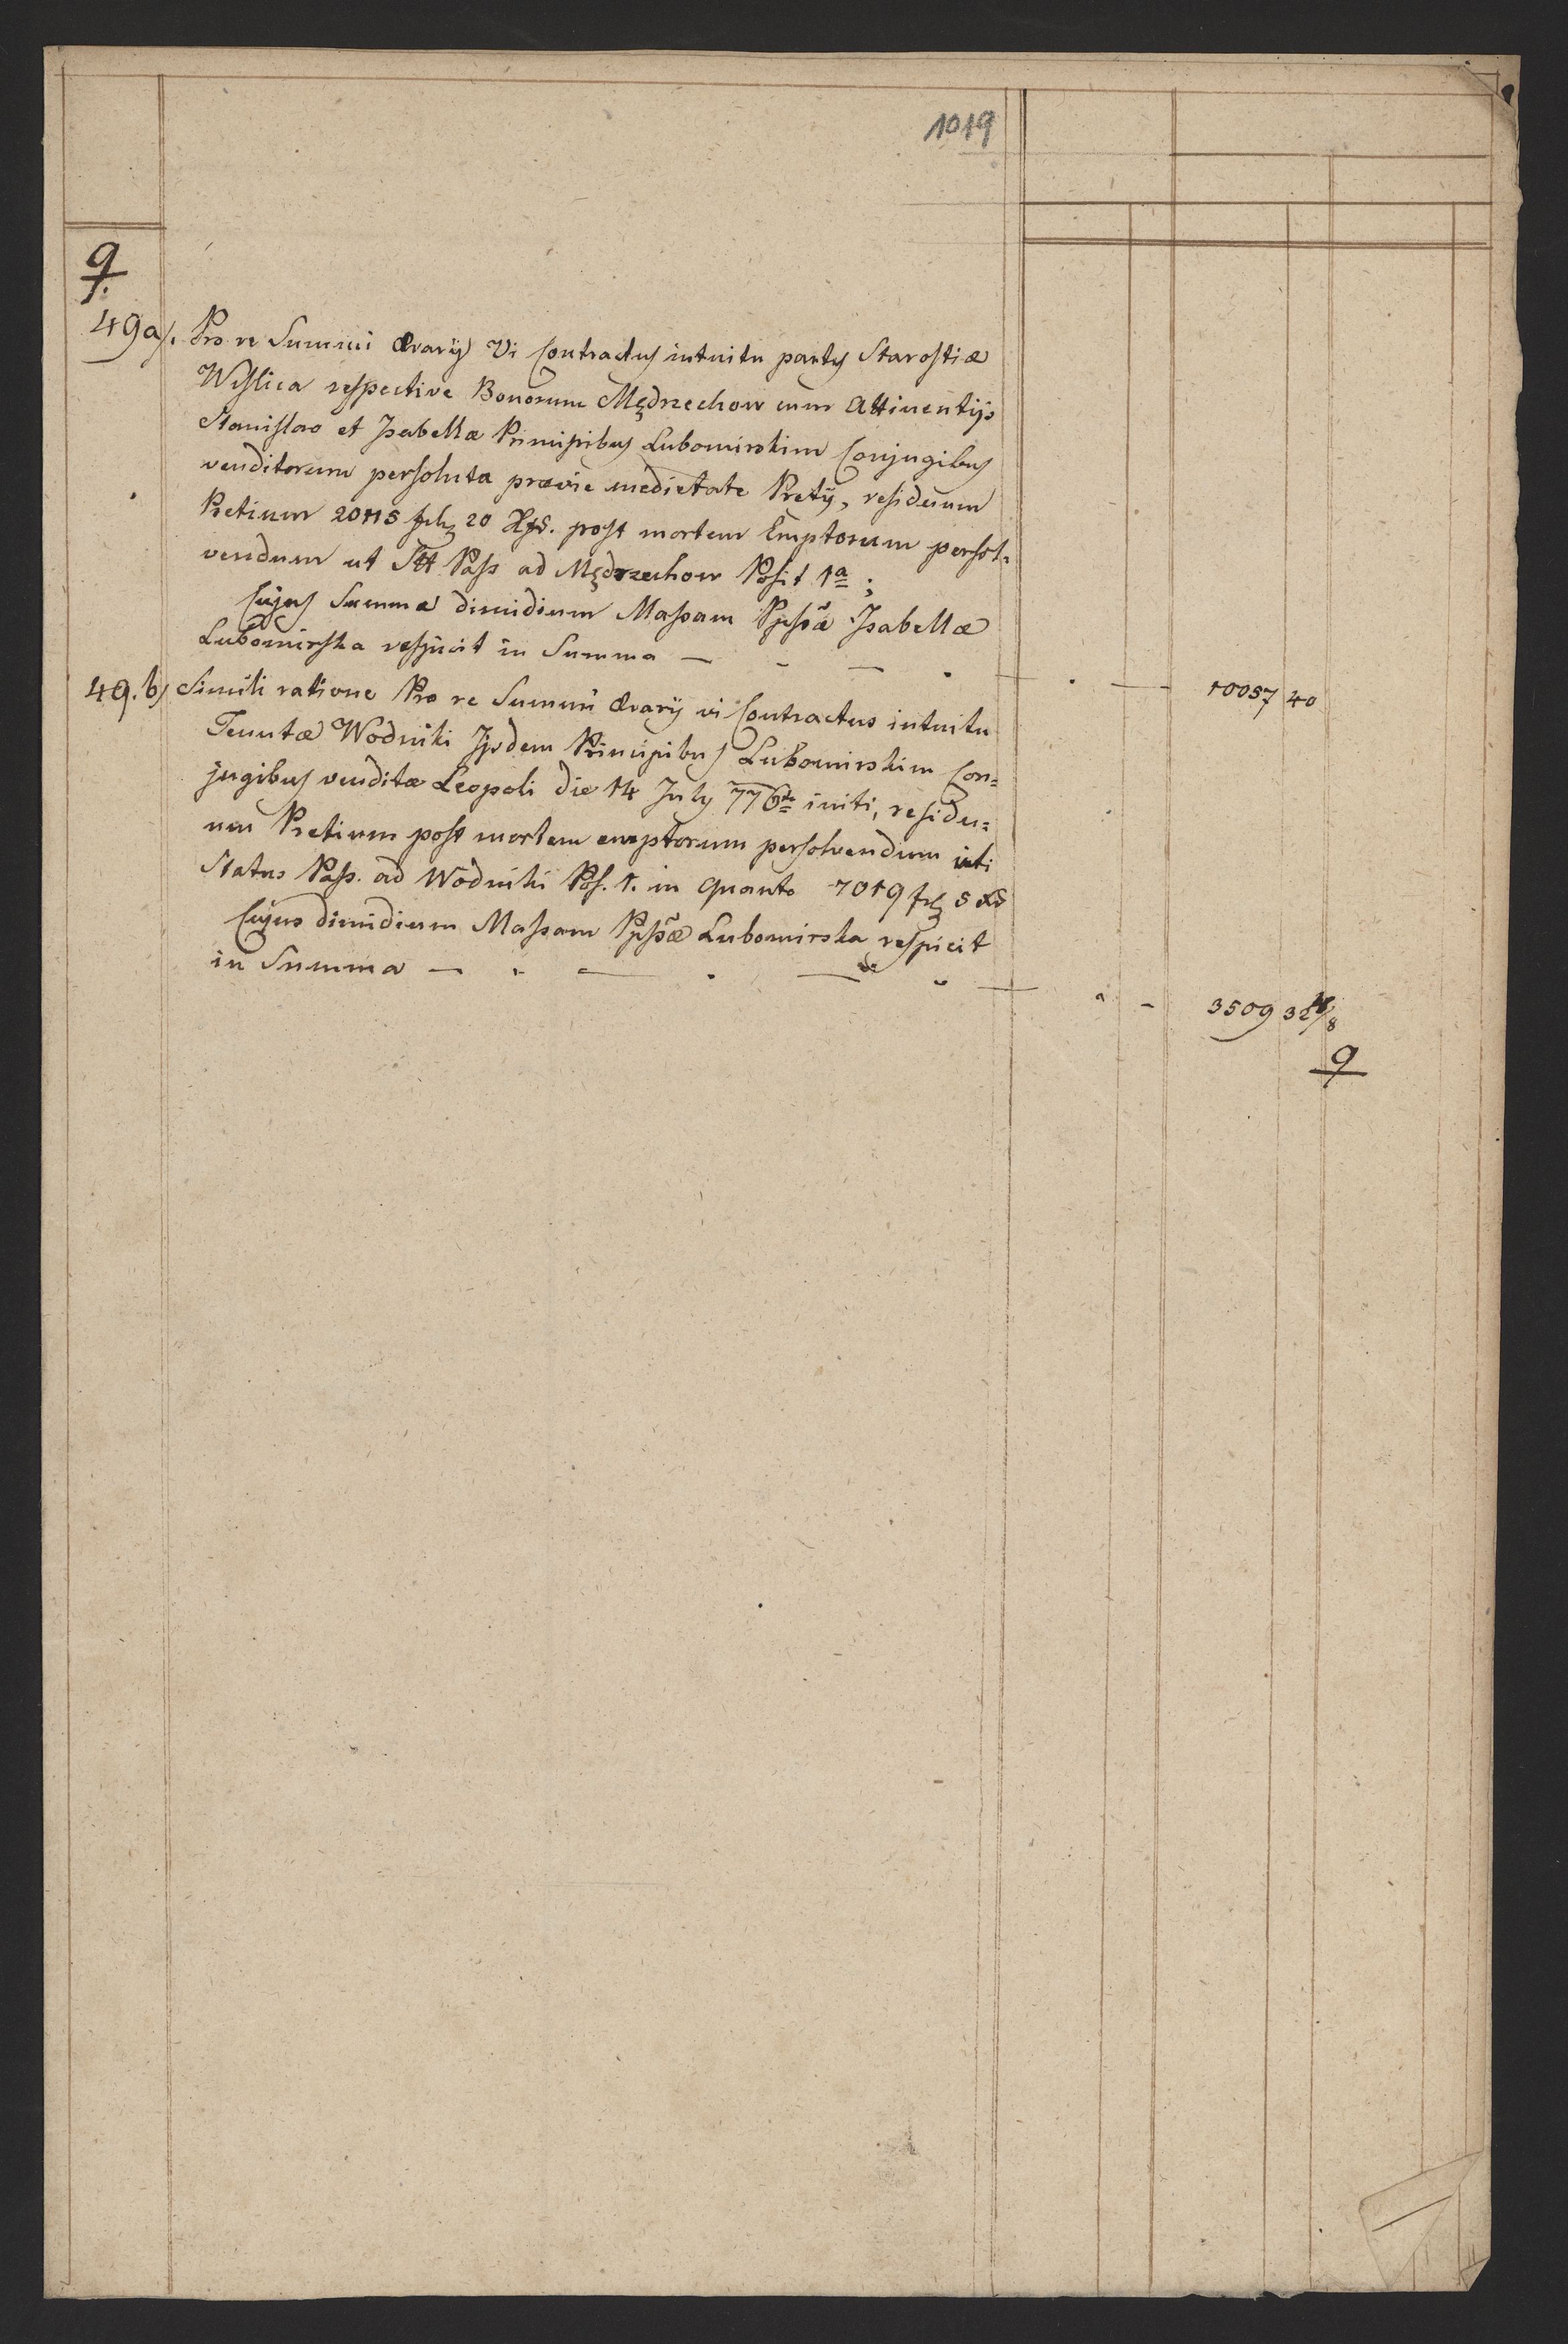 1019
9
49a/. Pro re Summi Ærarÿ Vi Contractus intuitu partis Starostiæ
Wislica respective Bonorum Mędrzechow cum Attinentÿs
Stanislao et Isabellæ Principibus Lubomirskim Conjugibus
venditorum persoluta prævie medietate Pretÿ, residuum
Pretium 20115 frh 20 Xrs. post mortem Emptorum persol-
vendum ut Stt Pass ad Mędrzechow Posit 1a;
Cujus Summæ dimidium Massam Ppssæ Isabellæ
Lubomirska respicit in Summa — - — - — 10057 40
49. b/ Simili ratione Pro re Summi Ærarÿ vi Contractus intuitu
Tenutæ Wodniki Iisdem Principibus Lubomirskim Con=
jugibus venditæ Leopoli die 14 July 776to initi, residu=
um Pretium post mortem emptorum persolvendum uti
Status Pass. ad Wodniki Pos. 1. in quanto 7019 frh 5 Xr
Cujus dimidium Massam Ppssæ Lubomirska respicit
in Summa — - — - — 3509 32 4/8
9